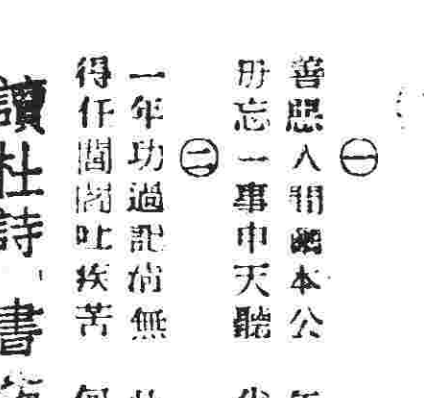 ㊀
善惡人間本公
忘一事中天聽
㊁
一年功過記無
得仟閻吐疾苦
讀杜詩、書